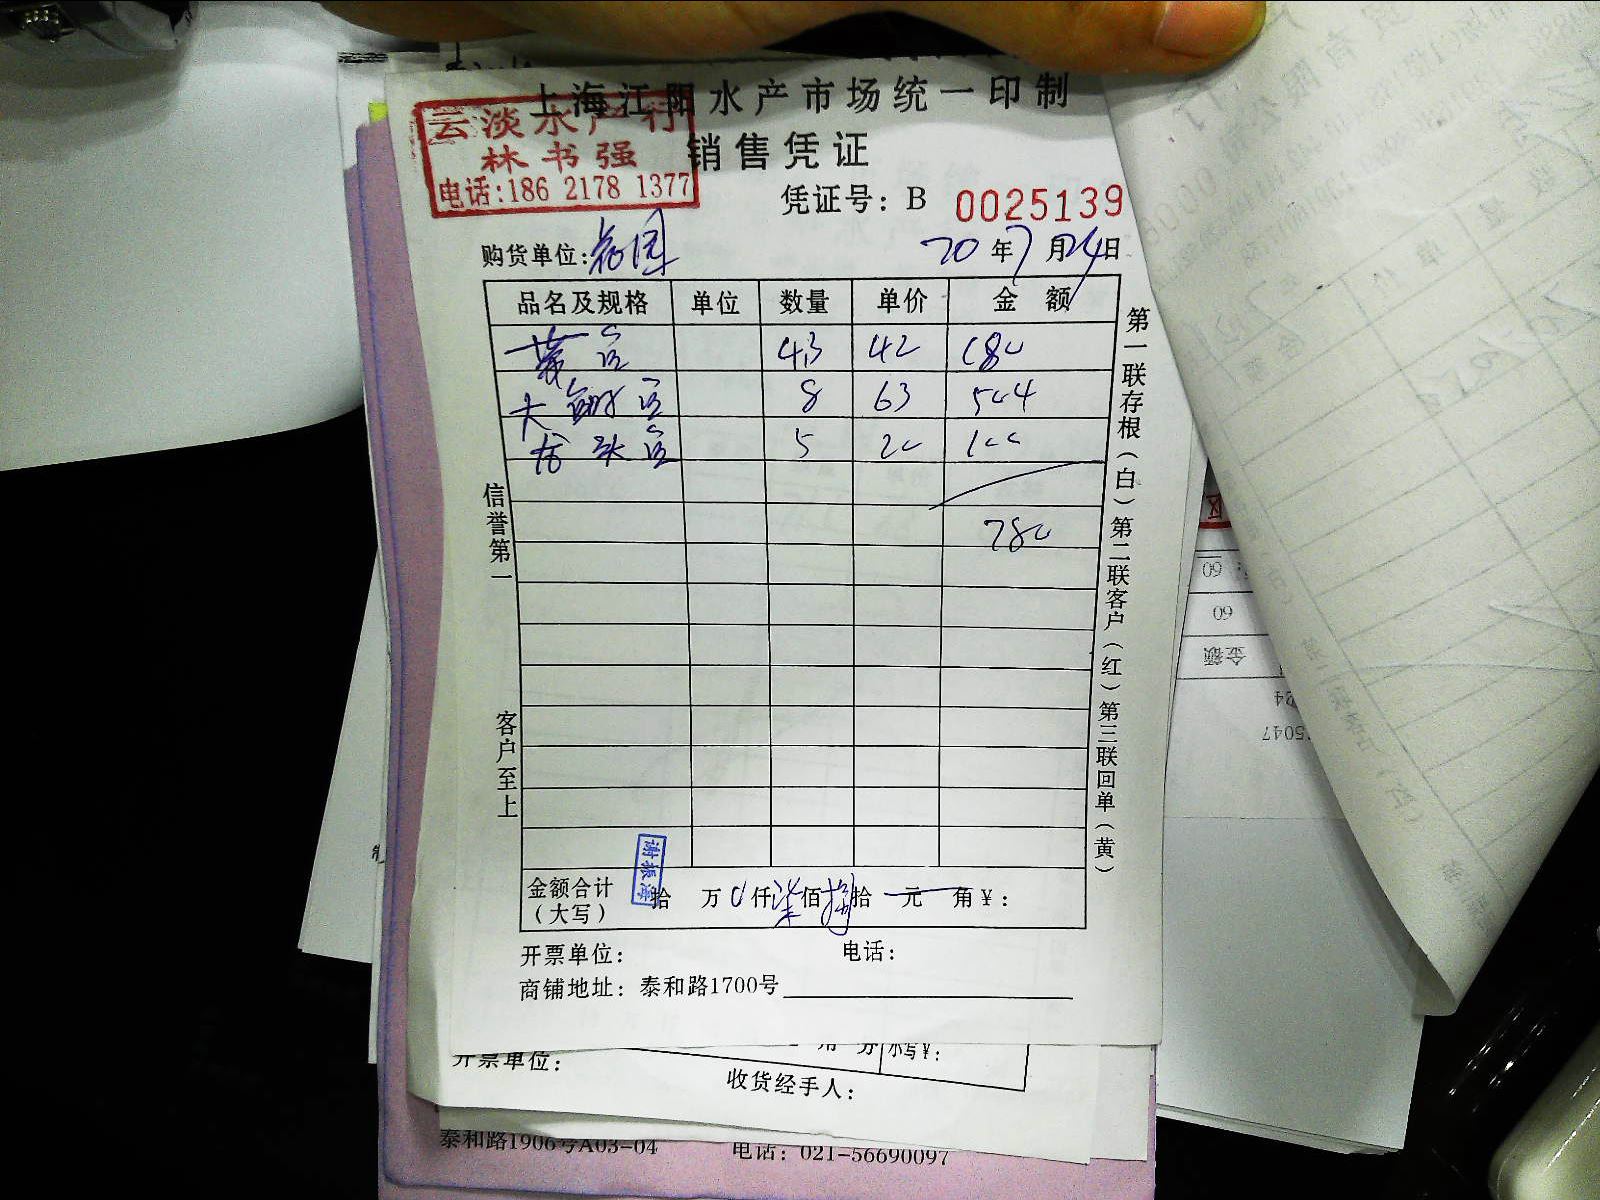 上海江阳水产市场统一印制
云淡水产行
林书强
电话:186 2178 1377
销售凭证
凭证号: B 0025139
购货单位:
20 年 7 月 24 日
品名及规格 单位 数量 单价 金 额
43 42 180
大 8 63 504
龙头 5 20 100
780
信誉第一
客户至上
第一联存根(白)第二联客户(红)第三联回单(黄)
谢振涛
金额合计 拾 万 0 仟 柒 佰 捌 拾 元 角 ¥:
(大写)
开票单位: 电话:
商铺地址: 泰和路1700号
角 分 小写¥:
开票单位:
收货经手人:
泰和路1906号A03-04 电话: 021-56690097
60
60
金额